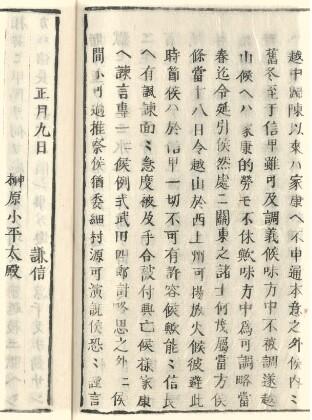 越中歸陳以來ハ家康ヘ不申通本意之外候内々
舊冬至于信甲雖可及調義候味方中不被調遂越
山候ヘハ家康的勞モ不休歟味方中為可調略當
春迄令延引候然處ニ關東之諸士何茂屬當方候
條當十八日令越山於西上州可揚放火候彼雖此
時節候ハ於信甲一切不可有許容候歟能々信長
ヘ有諷諫面々急度被及手合談付興亡候様家康
ヘ諫言專一ニ候例式武田四郎討略思之外ニ候
間不可過推察侯猶委細村源可演説候恐々謹言
正月九日
謙信
榊原小平太殿